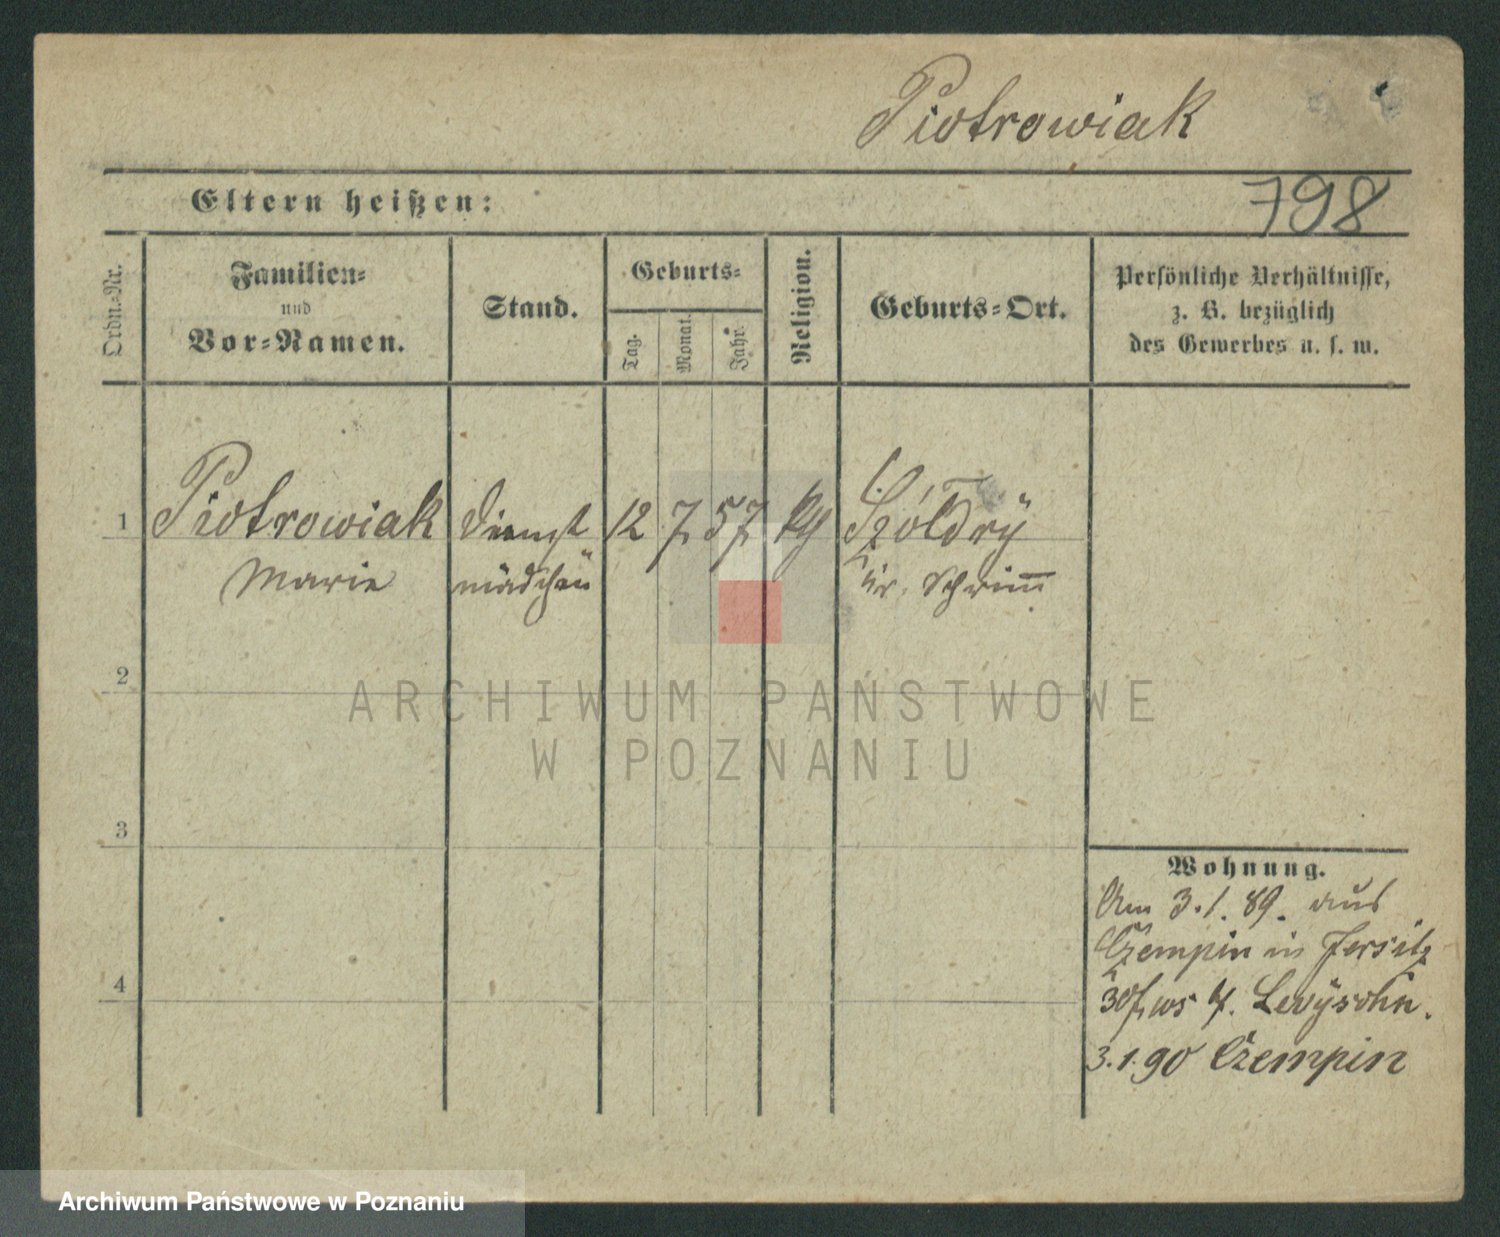 Piotrowiak
Eltern heißen:
798
Ordn.-Nr.
Familien-
und
Vor-Namen.
Stand.
Geburts-
Tag.
Monat.
Jahr.
Religion.
Geburts-Ort.
Persönliche Verhältnisse,
z. B. bezüglich
des Gewerbes u. s. w.
1
Piotrowiak Dienst 12 7 57 Szóldry
Marie mädchen Kr. Schrimm
2
ARCHIWUM PAŃSTWOWE
W POZNANIU
3
Wohnung.
Am 3.1.89. aus
Czempin in Jersitz
Levysohn.
4
3.1.90 Czempin
Archiwum Państwowe w Poznaniu